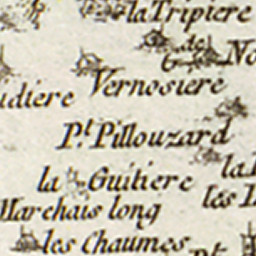 la Tripiere
de
No
Vernosiere
udiere
P.t Pillouzard
la Guitiere
la
les
Marchais long
les Chaumes